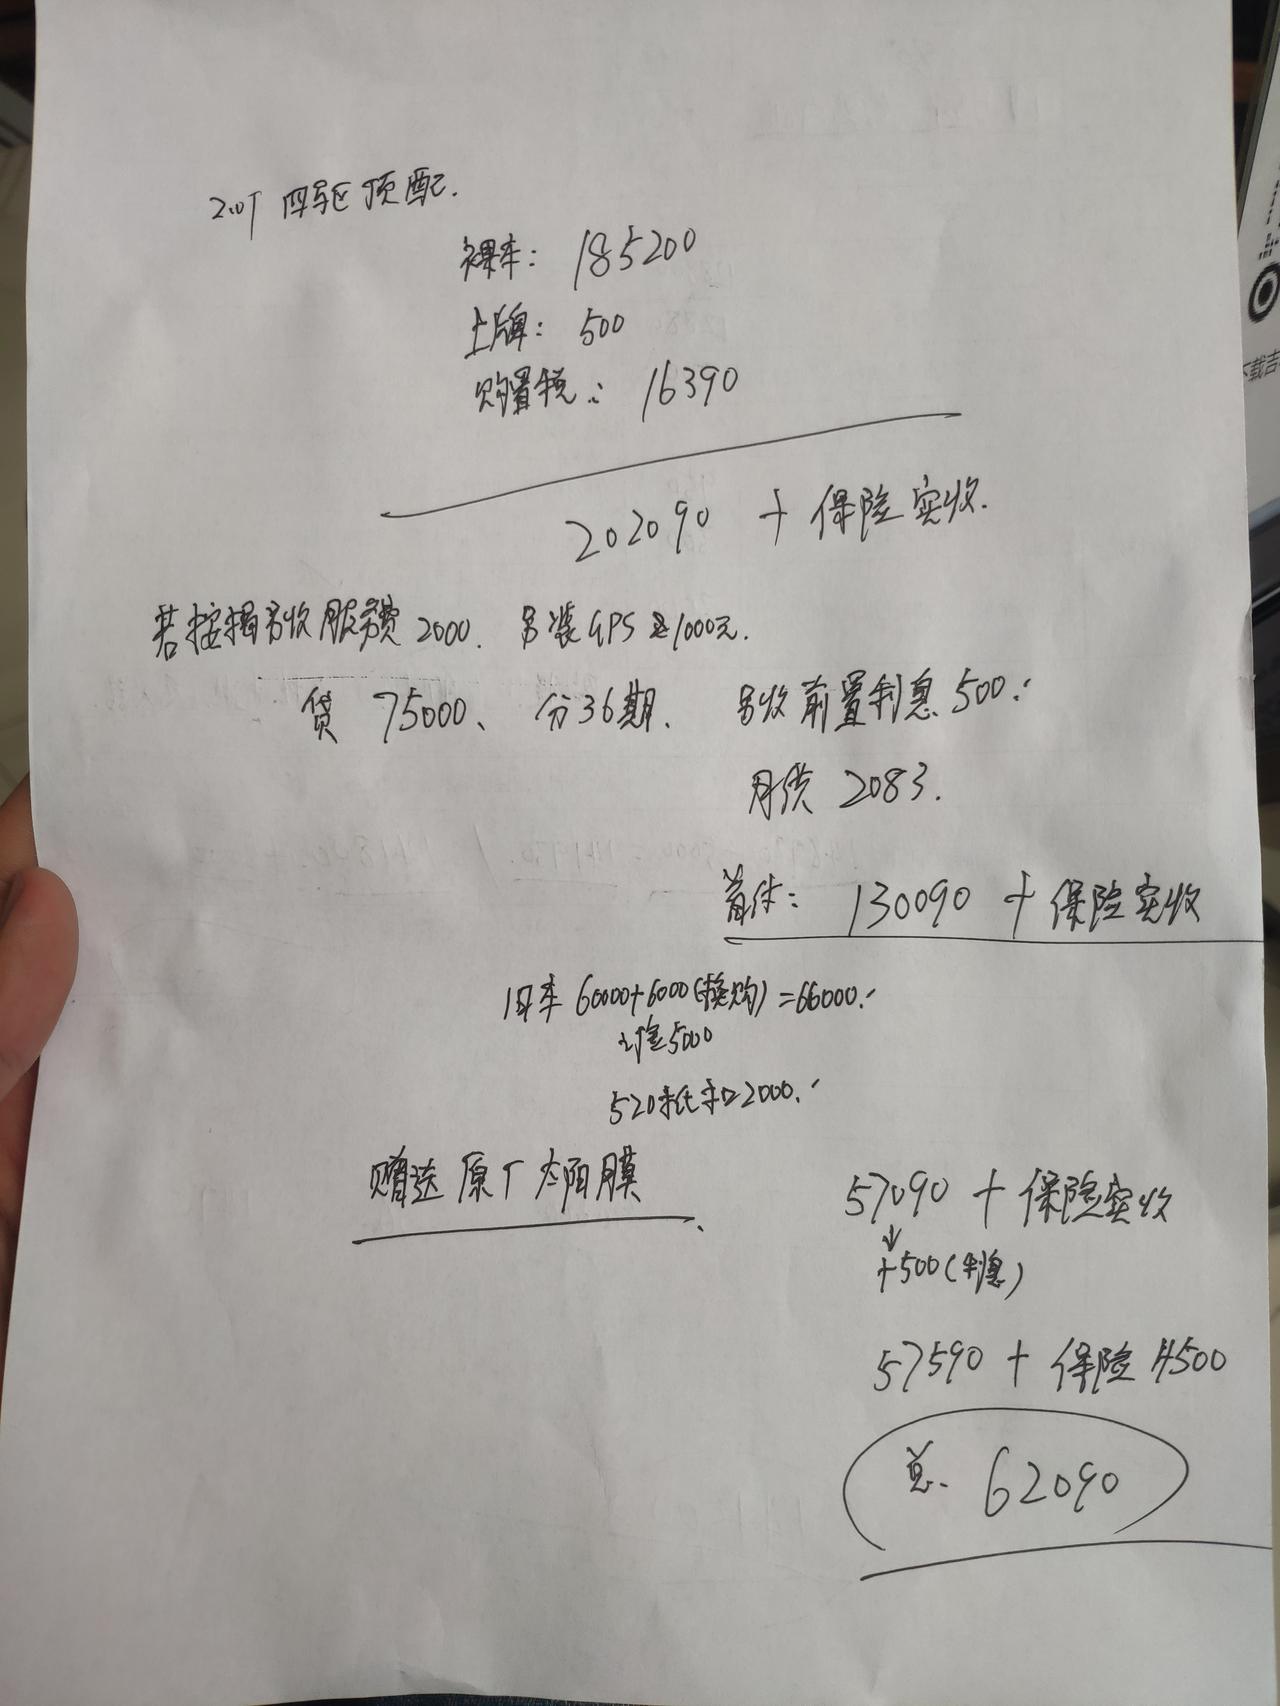 2.0T 四驱顶配.
裸车: 185200
上牌: 500
购置税: 16390
202090 + 保险实收.
若按揭另收服务费2000. 另装GPS 1000元.
贷 75000、 分36期. 另收前置利息500.
月供 2083.
首付: 130090 + 保险实收
旧车 60000+6000(换购)=66000.
订金5000
520抵扣2000.
赠送原厂太阳膜
57090 + 保险实收
+500(利息)
57590 + 保险4500
总. 62090
下载吉